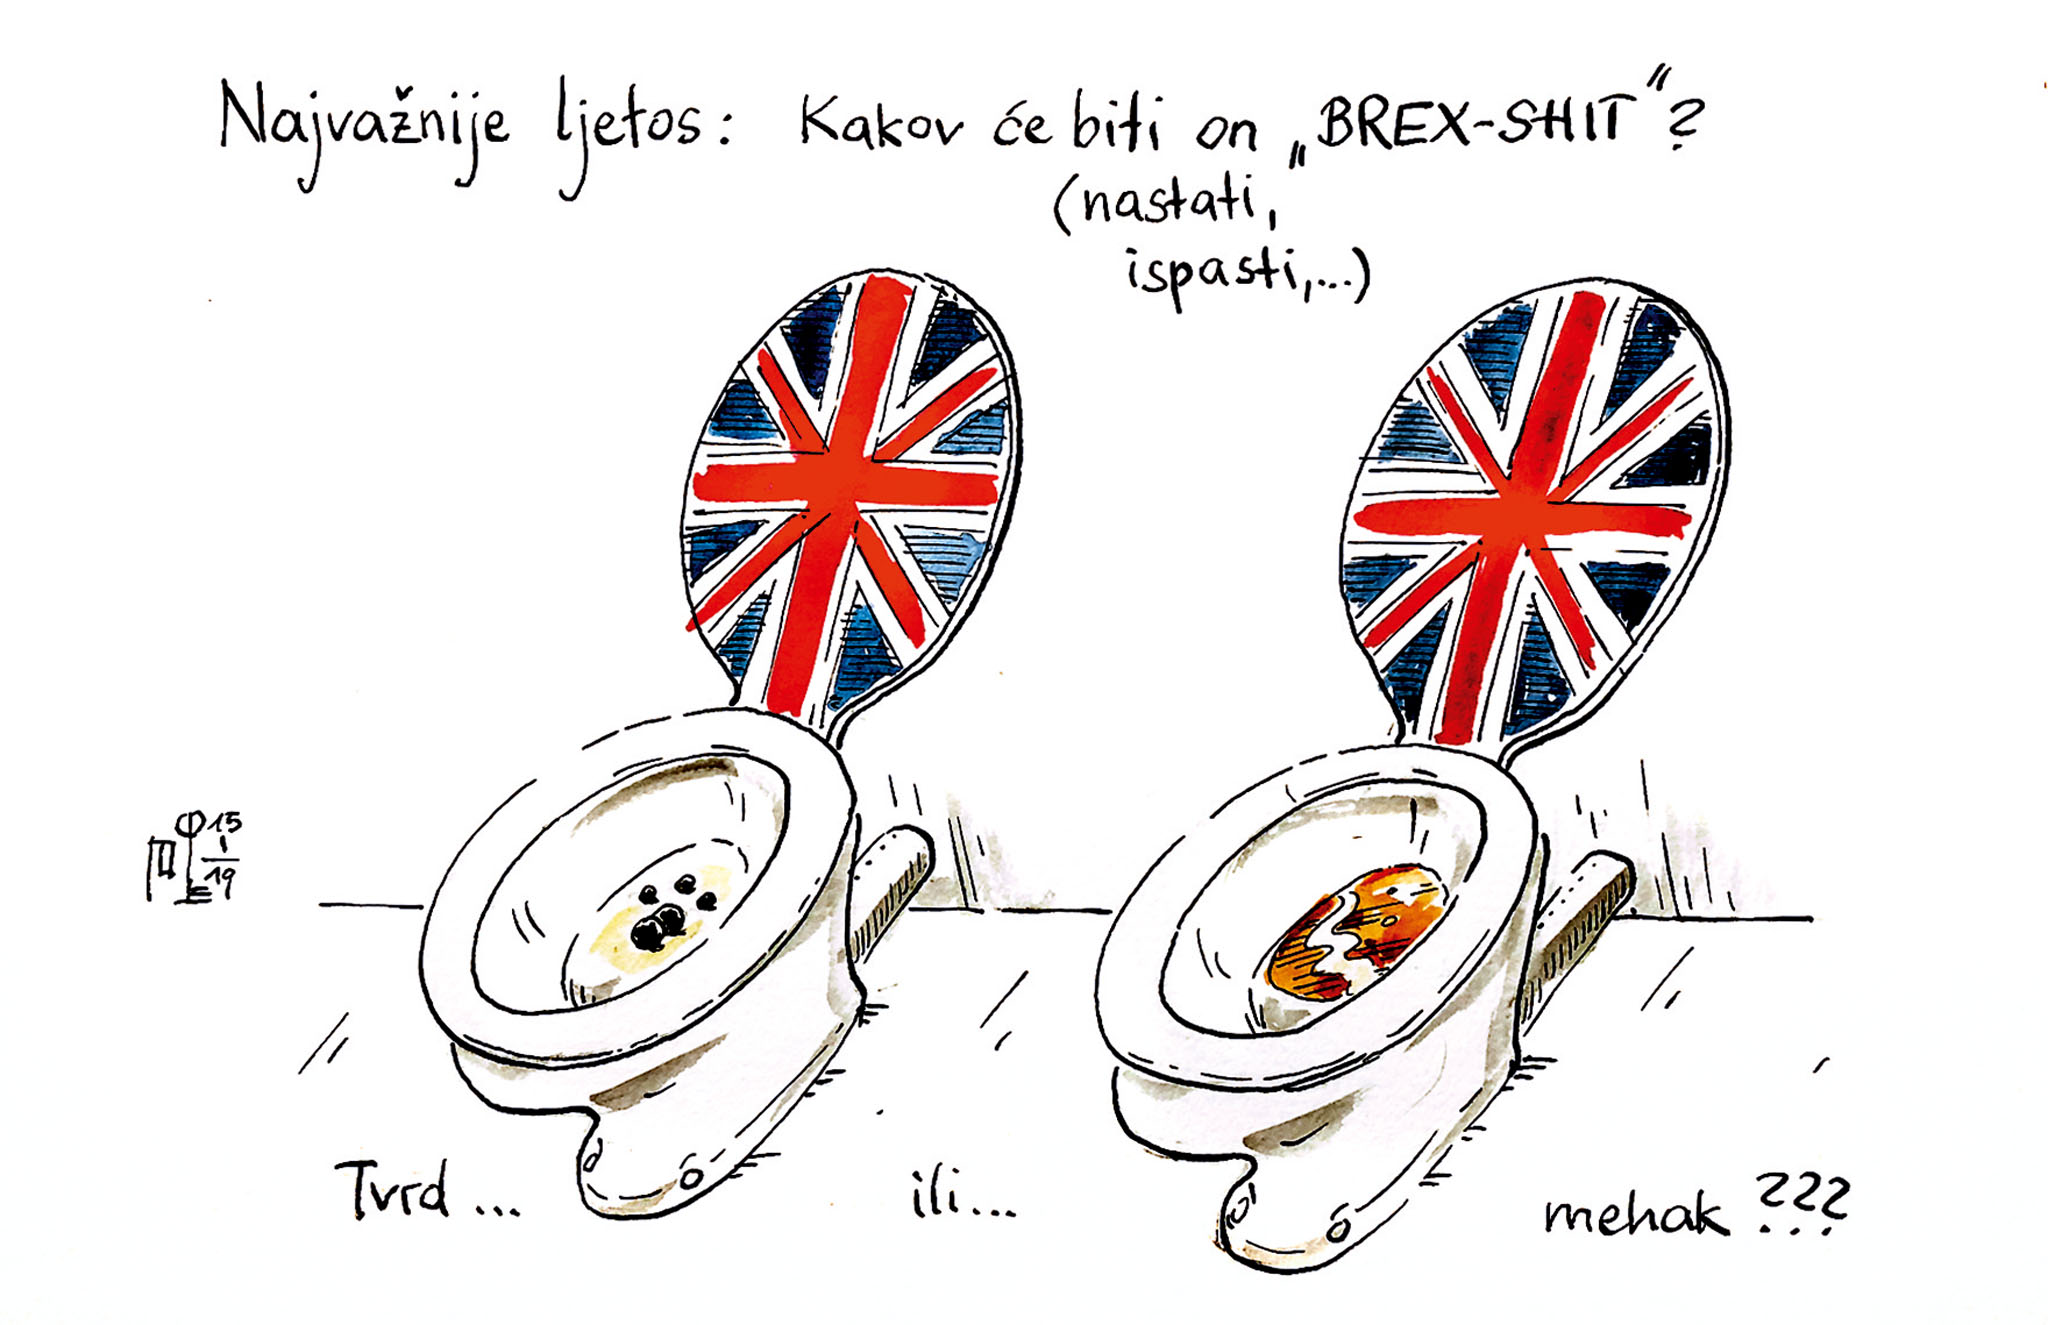 Najvažnije ljetos: Kakov će biti on „BREX-SHIT“?
(nastati,
ispasti,...)
15
1
19
Tvrd... ili... mehak ???